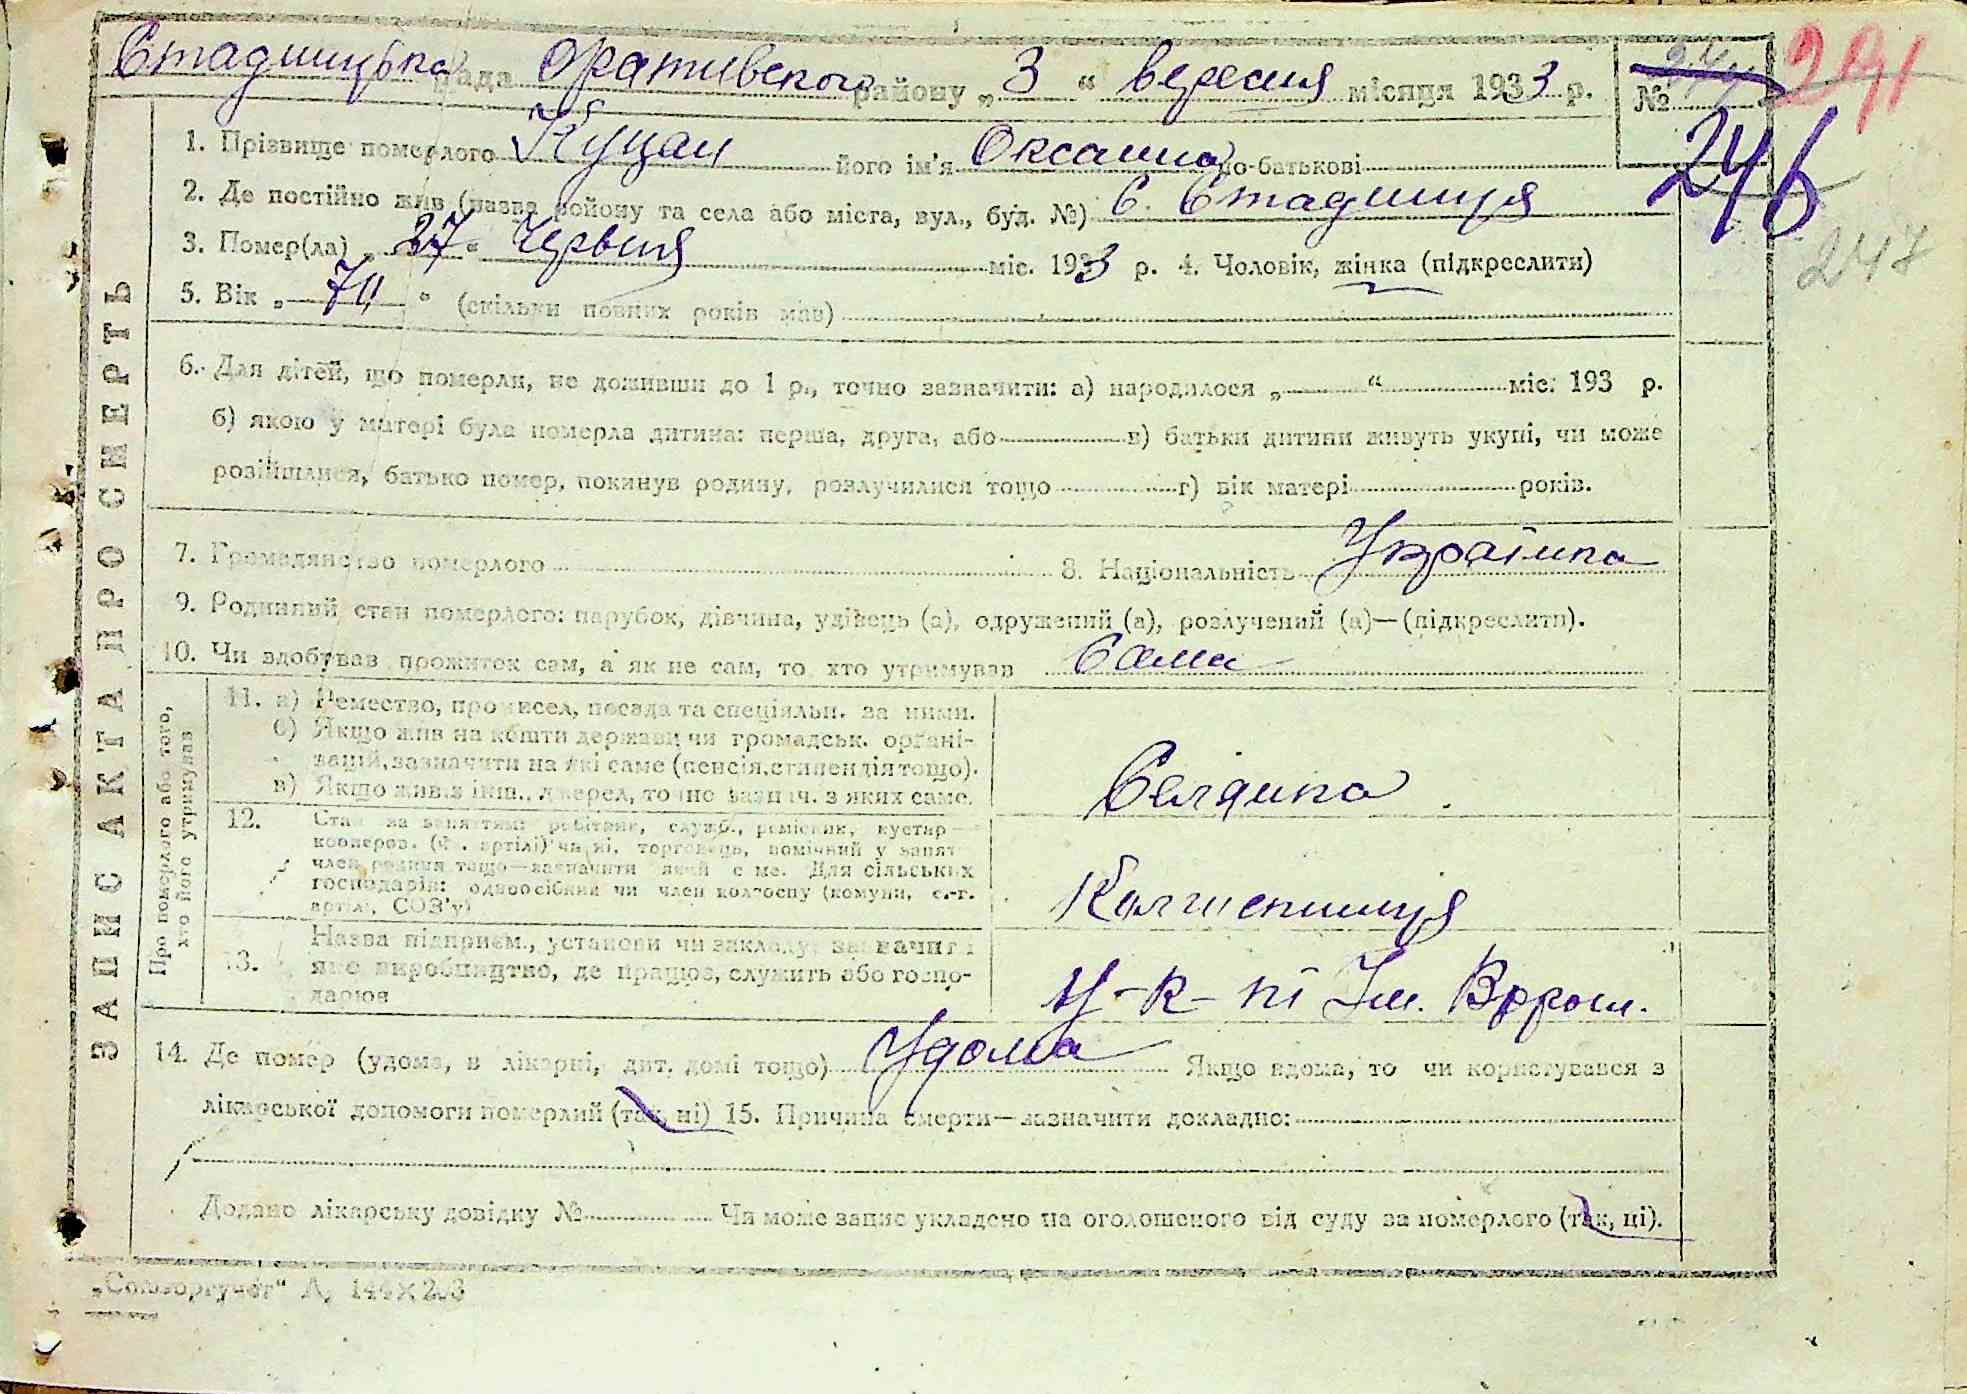 Стадницька рада Оративского району „3“ вересня місяця 1933 р. № 291
246
247
1. Прізвище померлого Куцан його ім'я Оксанна по-батькові
2. Де постійно жив (назва району та села або міста, вул., буд. №) С. Стадниця
3. Помер(ла) „27“ Червня міс. 1933 р. 4. Чоловік, жінка (підкреслити)
5. Вік „70“ (скільки повних років мав)
6. Для дітей, що померли, не доживши до 1 р., точно зазначити: а) народилося „ “ міс. 193 р.
б) якою у матері була померла дитина: перша, друга, або в) батьки дитини живуть укупі, чи може
розійшлися, батько помер, покинув родину, розлучилися тощо г) вік матері років.
7. Громадянство померлого 8. Національність Українка
9. Родинний стан померлого: парубок, дівчина, удівець (а), одружений (а), розлучений (а)—(підкреслити).
10. Чи здобував прожиток сам, а як не сам, то хто утримував Сама
ЗАПИС АКТА ПРО СМЕРТЬ
Про померлого або того, хто його утримував
11. а) Ремество, промисел, посада та спеціяльн. за ними.
б) Якщо жив на кошти держави чи громадськ. органі-
зацій, зазначити на які саме (пенсія, стипендія тощо).
в) Якщо жив з інш. джерел, точно зазнач. з яких саме.
Селянка
12. Стан за заняттям: робітник, служб., ремісник, кустар
кооперов. (чл. артілі) чи ні, торговець, помічний у занят.
член родини тощо—зазначити який саме. Для сільських
господарів: одноосібник чи член колгоспу (комуни, с.-г.
артілі, СОЗ'у)
Колгиспниця
13. Назва підприєм., установи чи закладу, зазначити
яке виробництво, де працює, служить або госпо-
дарює
Ім. Ворош.
14. Де помер (удома, в лікарні, дит. домі тощо) Удома Якщо вдома, то чи користувався з
лікарської допомоги померлий (так, ні) 15. Причина смерти—зазначити докладно:
Додано лікарську довідку № Чи може запис укладено на оголошеного від суду за померлого (так, ні).
„Союзоргучет“